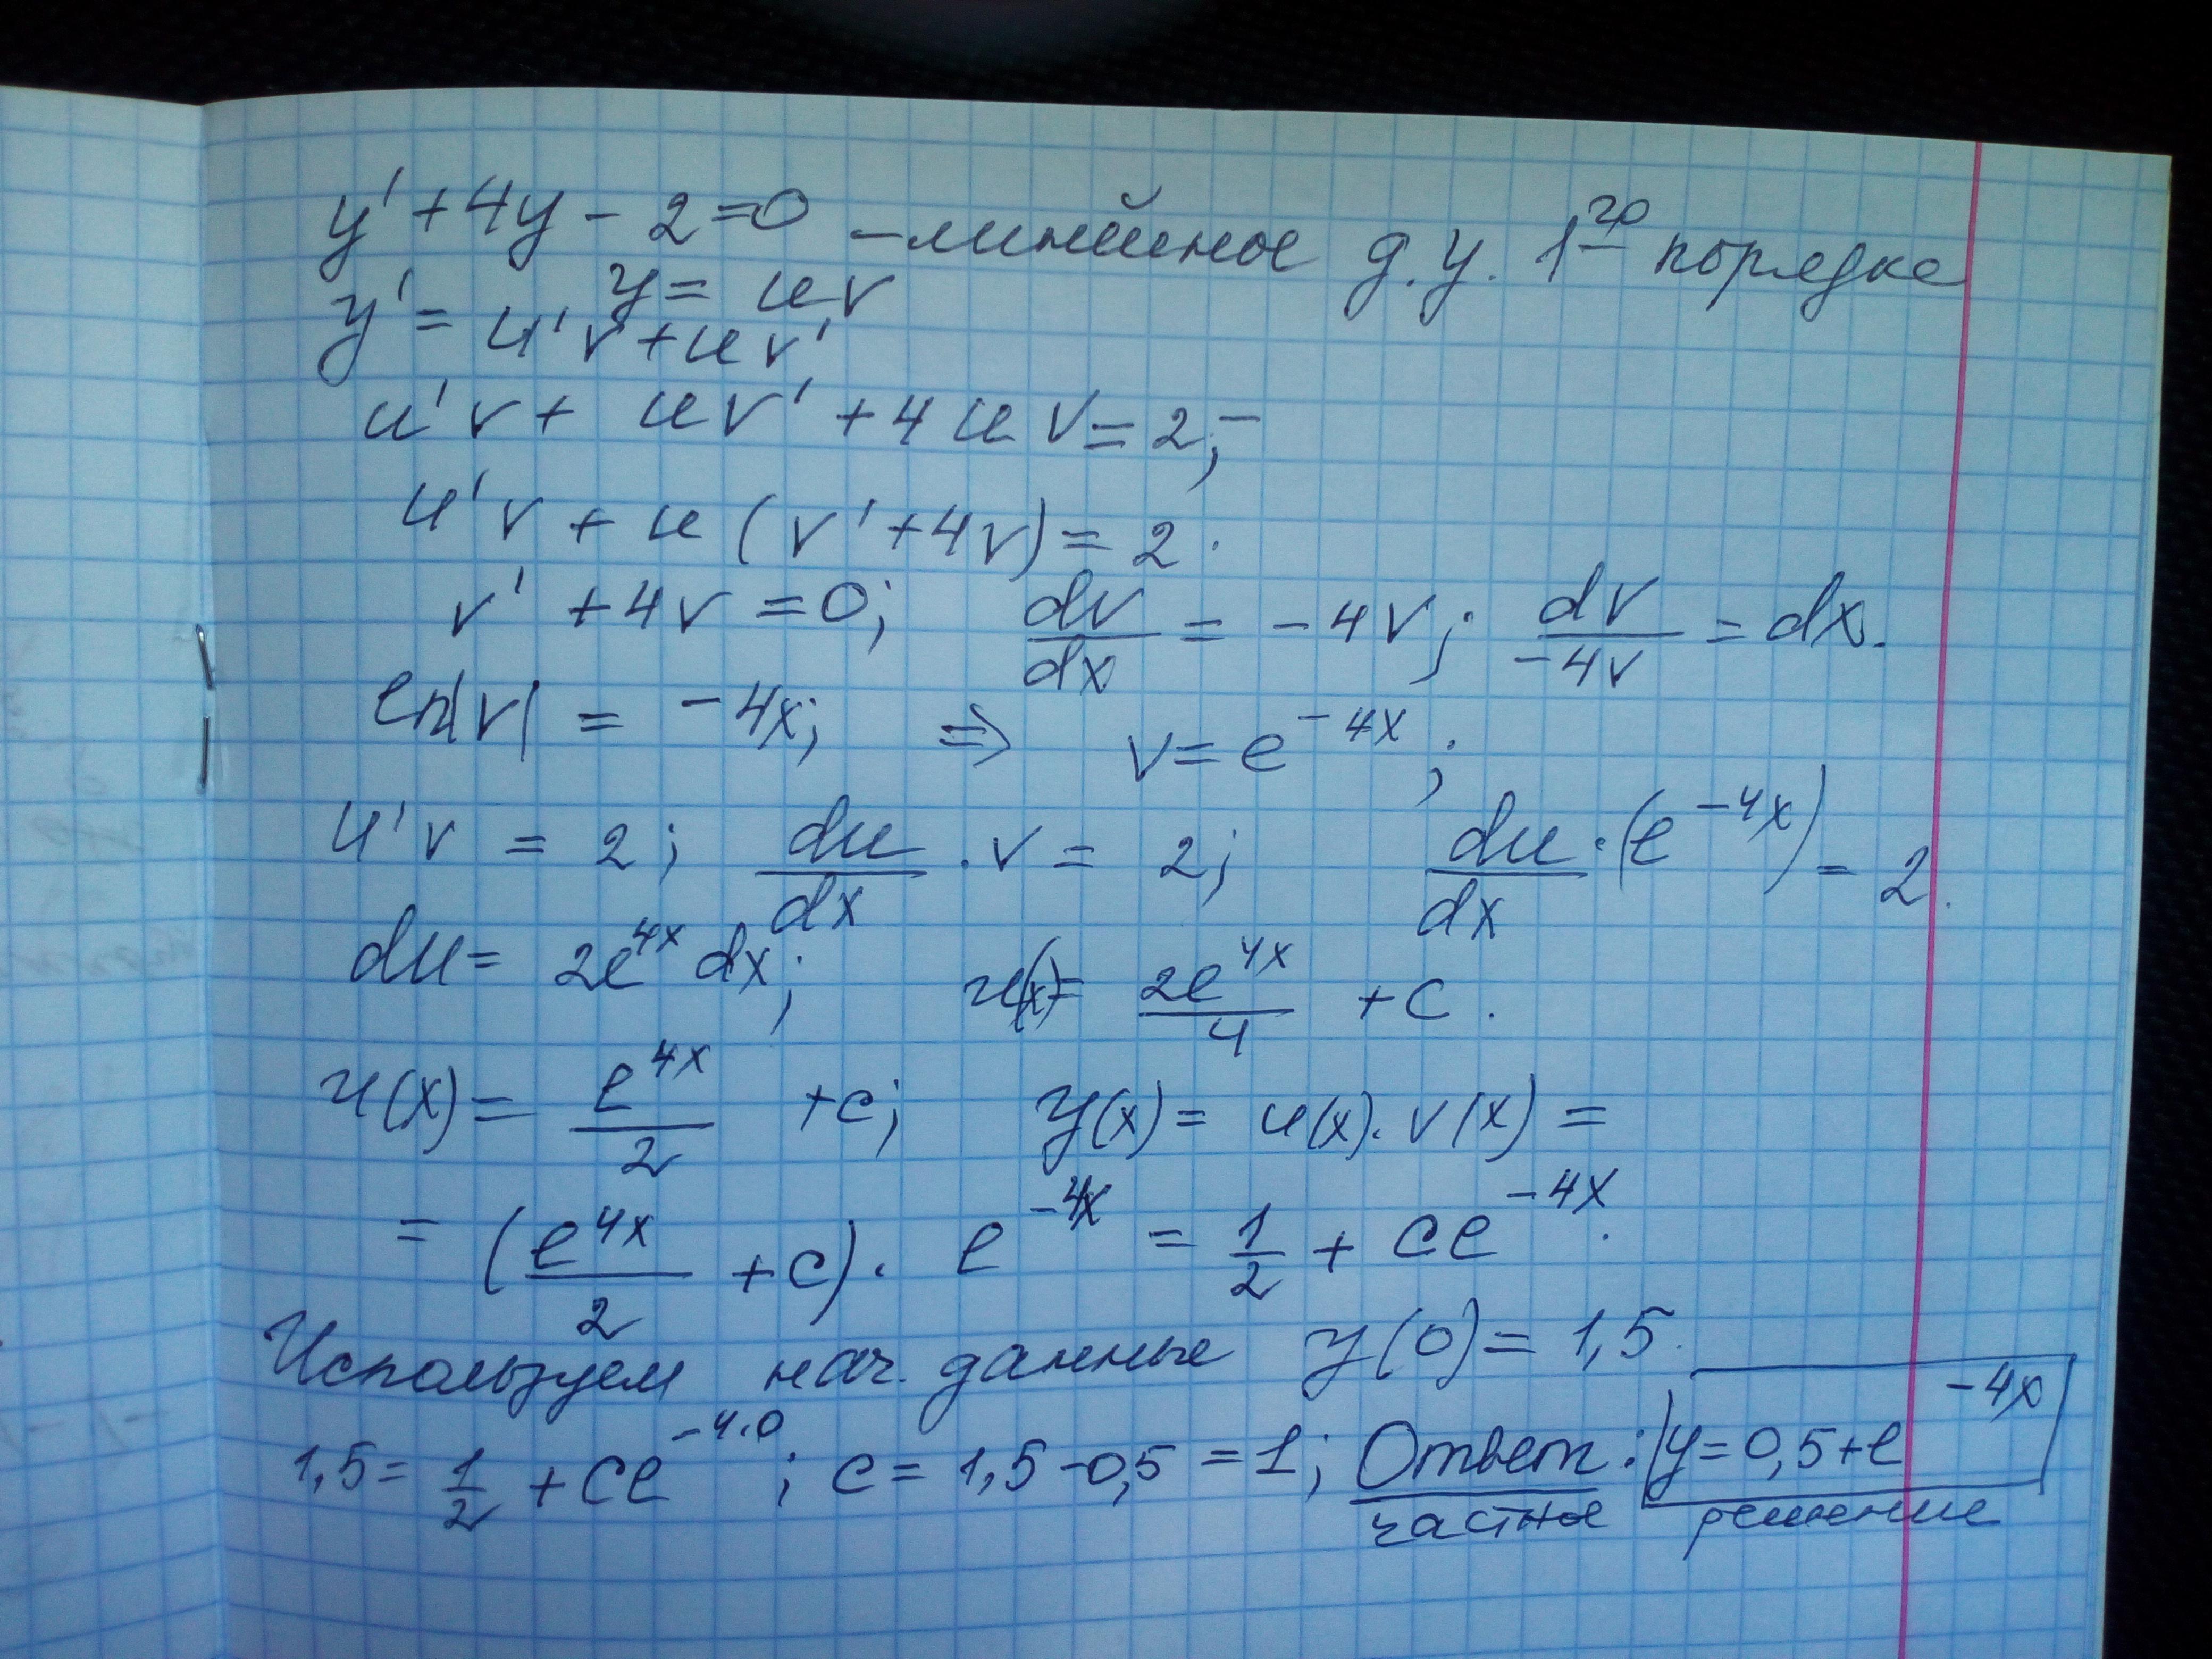 y' + 4y - 2 = 0 - линейное д.у. 1го порядка
y = uv
y' = u'v + uv'
u'v + uv' + 4uv = 2;
u'v + u(v' + 4v) = 2.
v' + 4v = 0; dv/dx = -4v; dv/-4v = dx.
ln|v| = -4x; ⇒ v = e^{-4x};
u'v = 2; du/dx · v = 2; du/dx · (e^{-4x}) = 2.
du = 2e^{4x}dx; u(x) = 2e^{4x}/4 + c.
u(x) = e^{4x}/2 + c; y(x) = u(x)·v(x) =
= (e^{4x}/2 + c)· e^{-4x} = 1/2 + ce^{-4x}.
Используем нач. данные y(0) = 1,5.
1,5 = 1/2 + ce^{-4·0}; c = 1,5 - 0,5 = 1; Ответ: y = 0,5 + e^{-4x}
частное решение